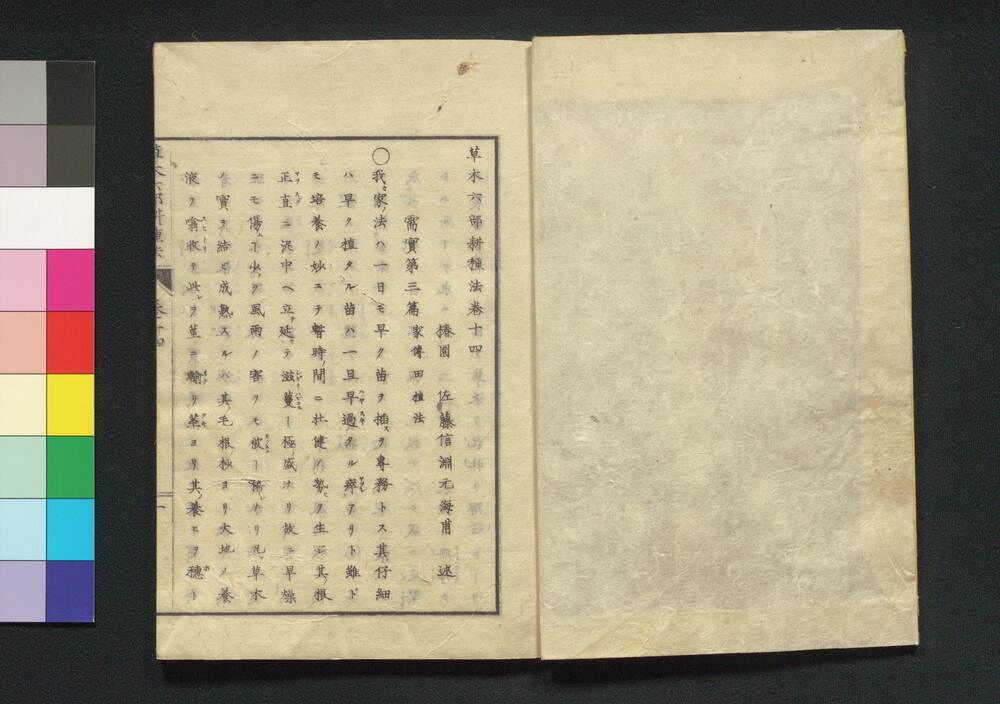 草木六部耕種法卷十四
椿園 佐藤信淵元海甫 述
需實第三篇 家傳田植法
〇我家ノ法ハ一日モ早ク苗ヲ插ヲ專務トス其仔細
ハ早ク植タル苗ハ一旦早過タル弊アリト雖ド
モ培養ノ妙ニテ暫時ノ間ニ壯健ノ勢ヲ生ジ其根
正直ニ泥中ヘ立延テ滋蔓ヿ極盛ナリ故ニ旱燥
ニモ傷ヿ少ク風雨ノ害クモ被ヿ稀ナリ凡草木
實ヲ結テ成熟スルハ其毛根ノ杪ヨリ大地ノ養
液ヲ噏收テ此ヲ莖ニ輸リ莖ヨリ其養ヒヲ穗ト
草木六部耕種法 卷十四 一